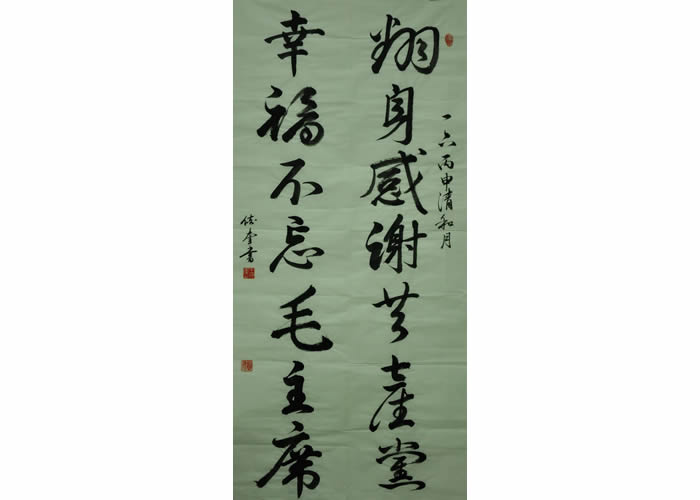 一六丙申清和月
翻身感谢共產黨
幸福不忘毛主席
奎书